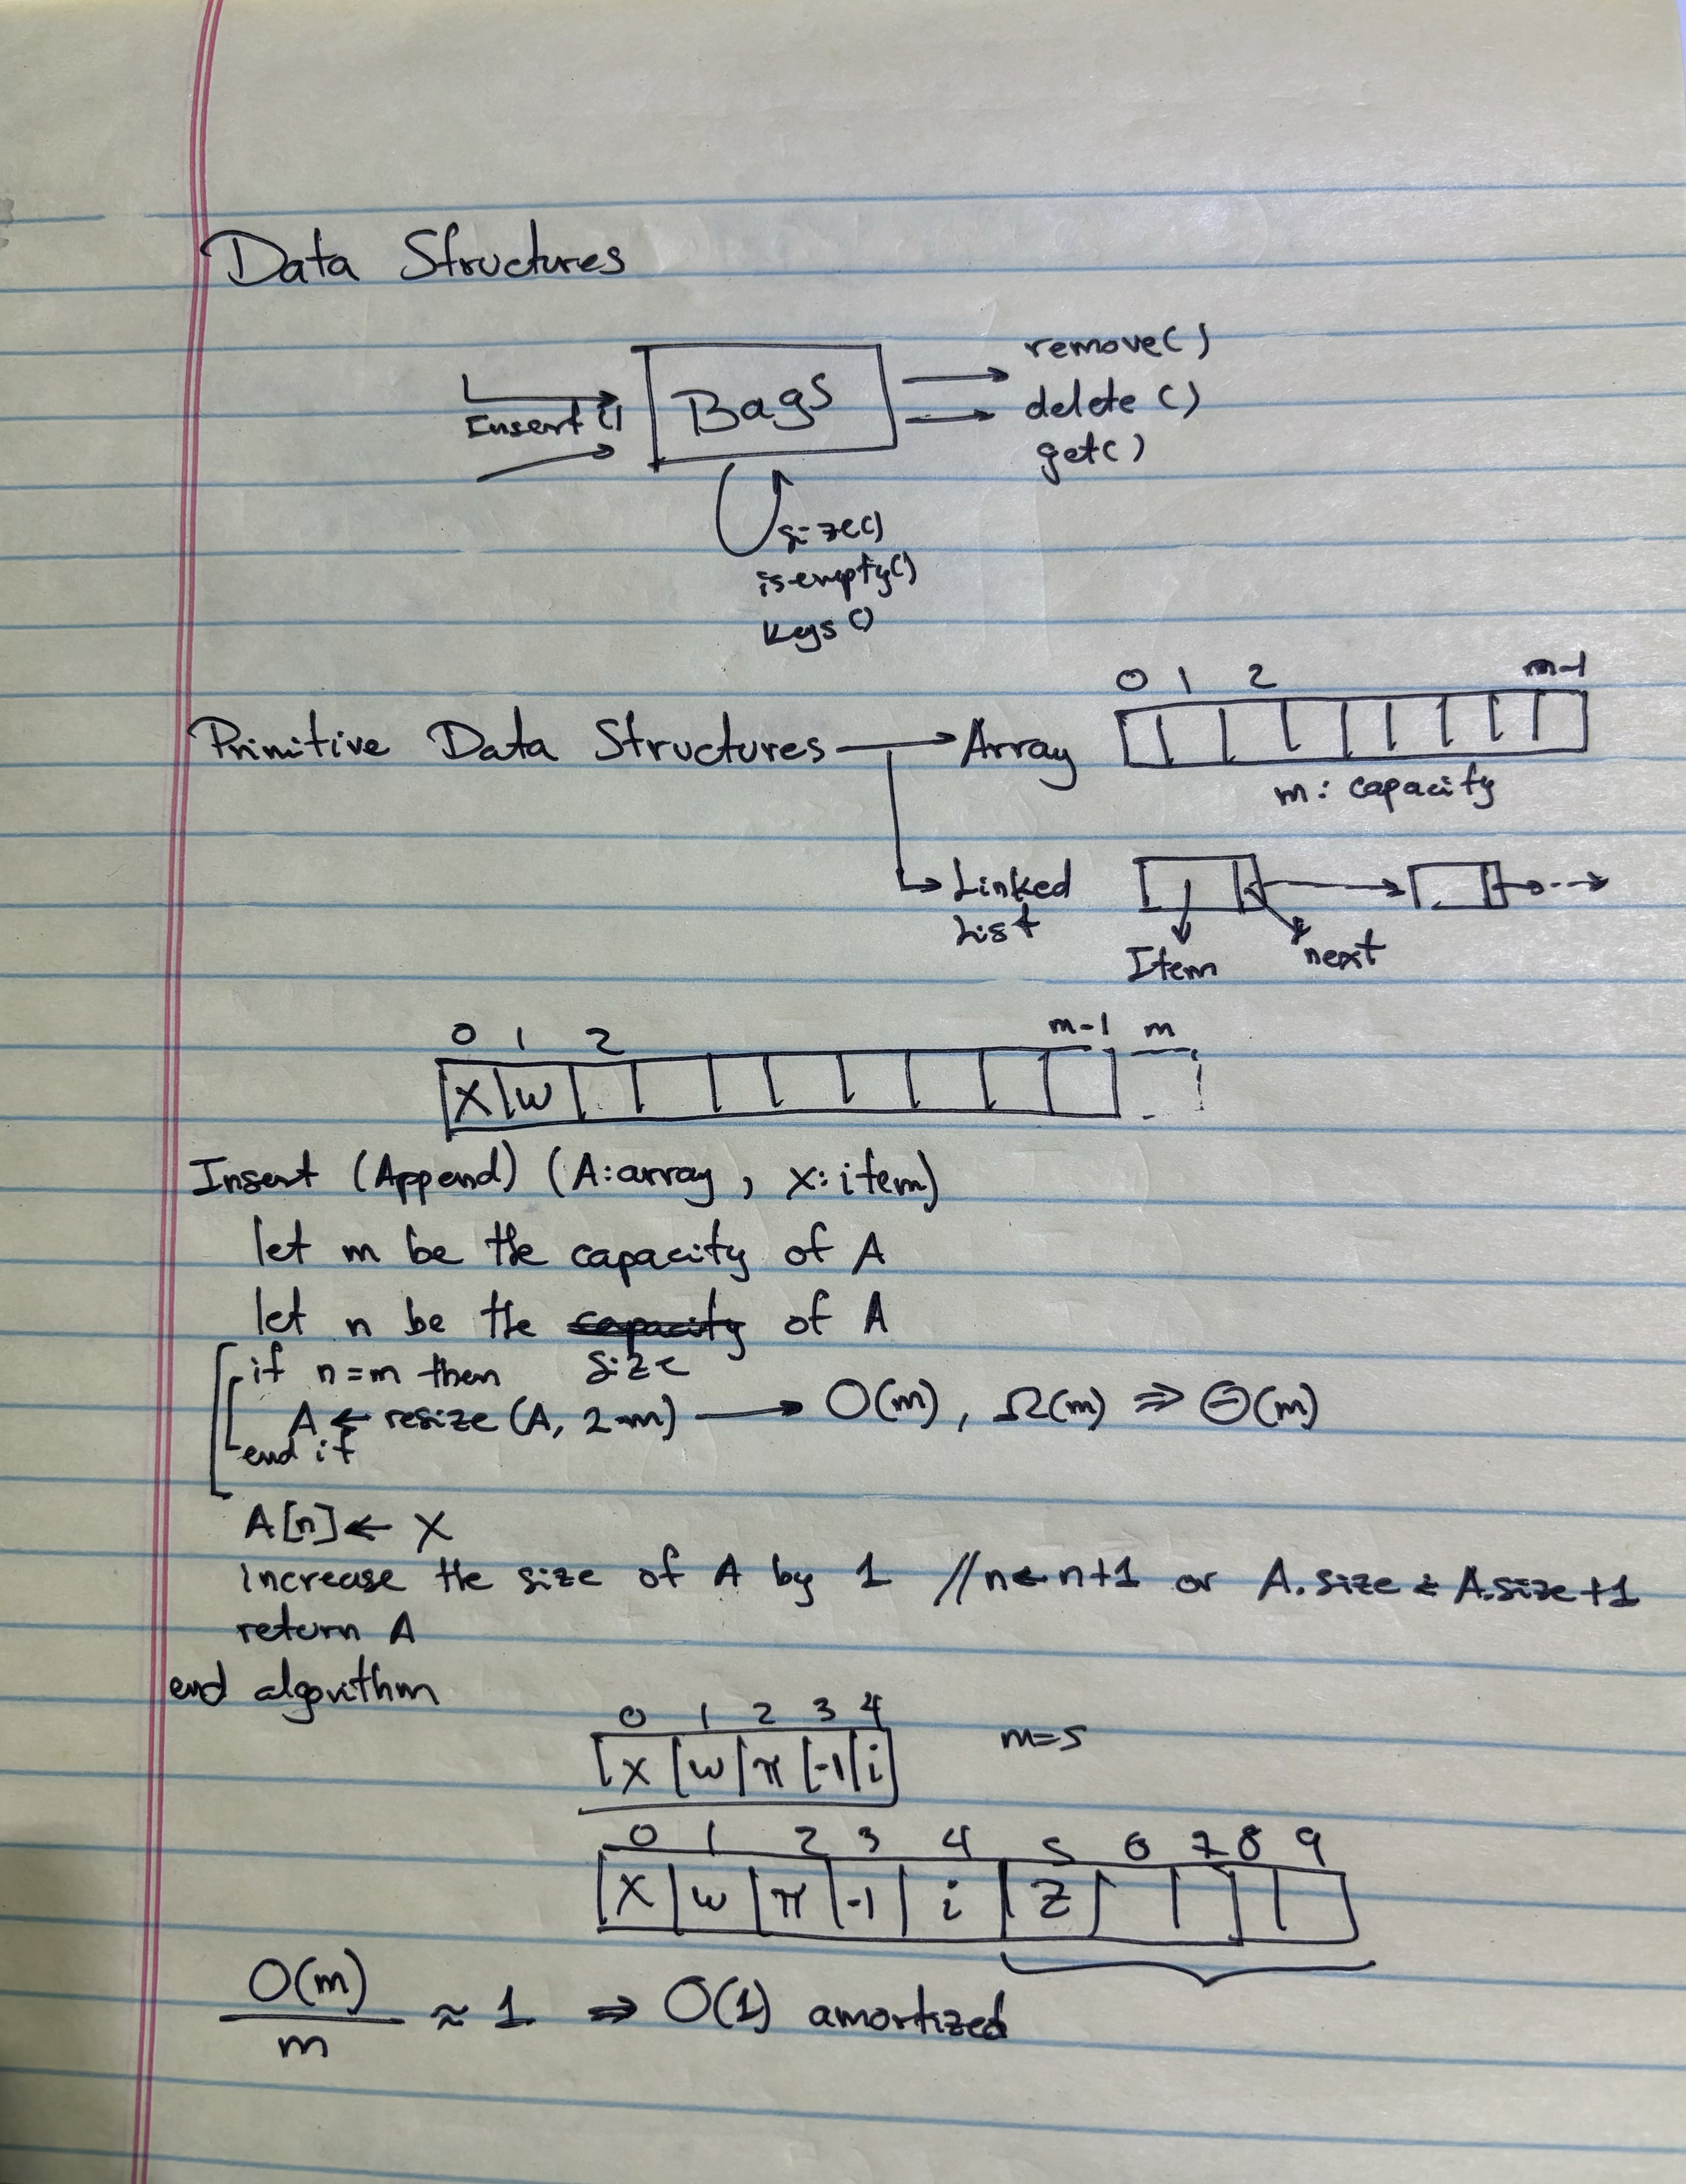 Data Structures
remove()
Insert() Bags delete()
get()
size()
isempty()
keys()
0 1 2 m-1
Primitive Data Structures → Array
m: capacity
Linked
List
Item next
0 1 2 m-1 m
x w
Insert (Append) (A:array, x:item)
let m be the capacity of A
let n be the capacity of A
size
if n=m then
A ← resize (A, 2·m) → O(m), Ω(m) ⇒ Θ(m)
end if
A[n] ← x
Increase the size of A by 1 //n←n+1 or A.size ← A.size+1
return A
end algorithm
0 1 2 3 4
x w π -1 i m=5
0 1 2 3 4 5 6 7 8 9
x w π -1 i z
O(m)/m ≈ 1 ⇒ O(1) amortized